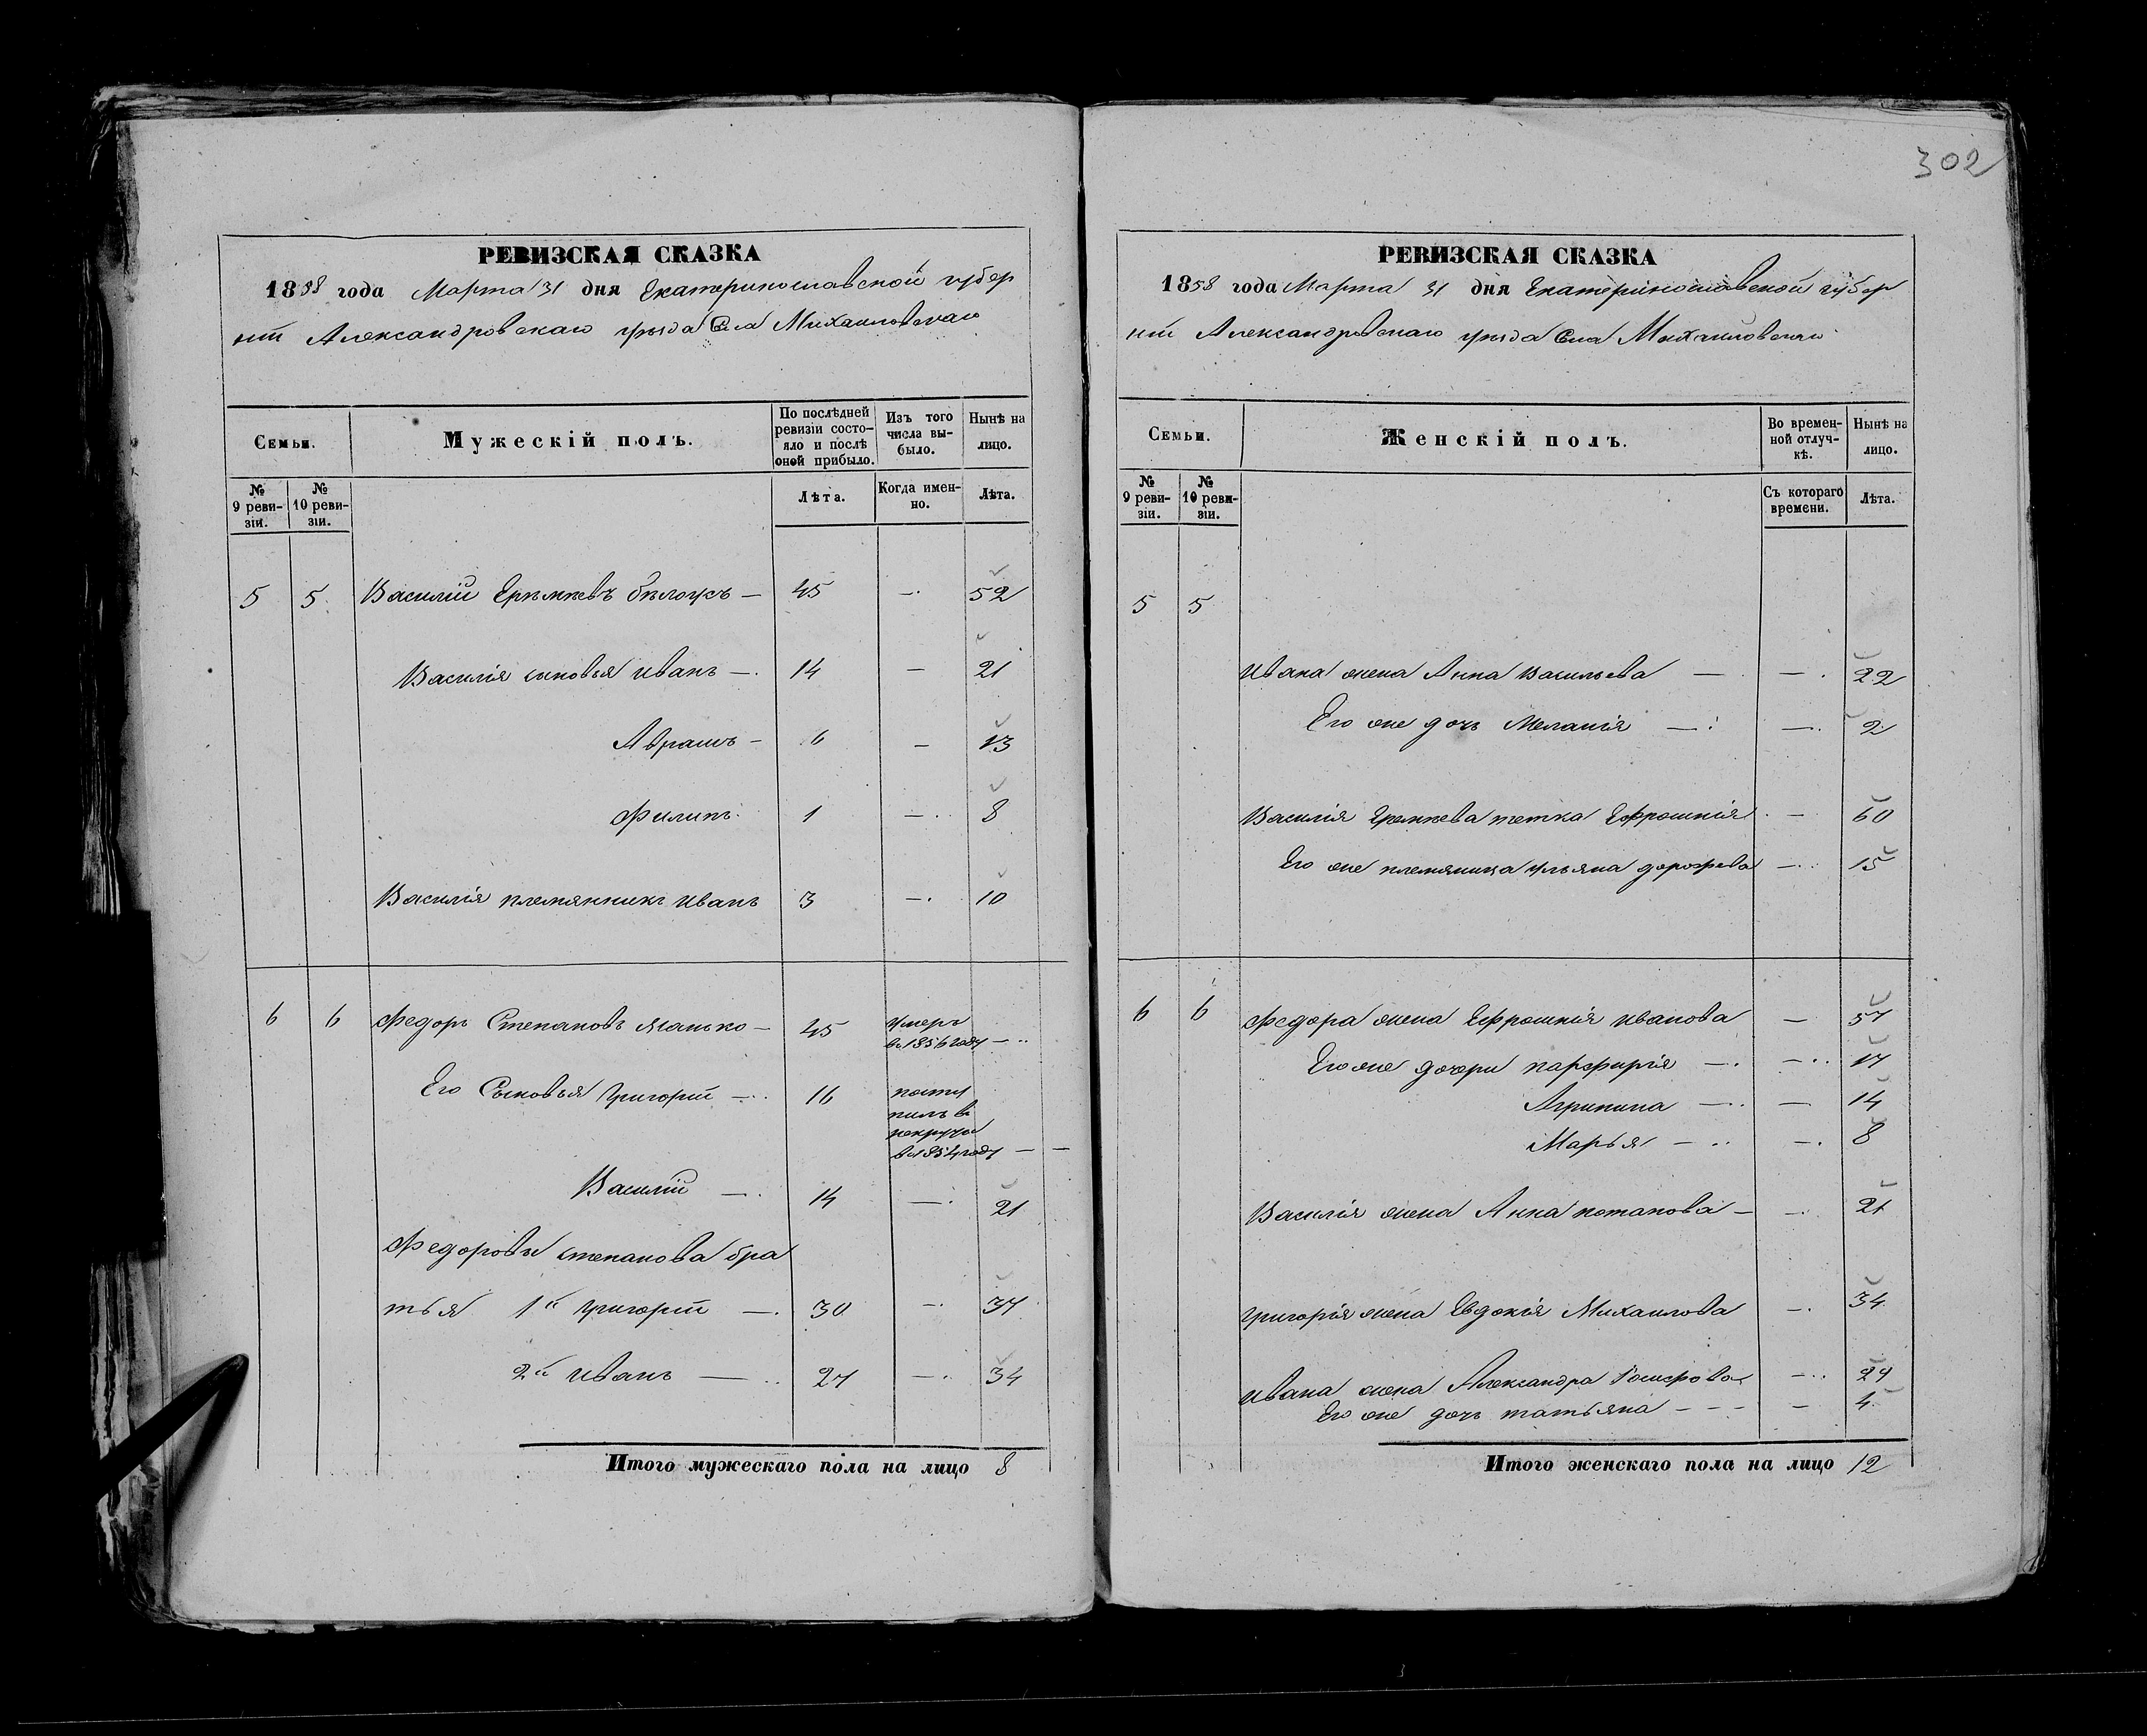 302
РЕВИЗСКАЯ СКАЗКА
1858 года Марта 31 дня Екатеринославской губер
ніи Александровскаго уѣзда Села Михайловскаго
Семьи.
Мужескій полъ.
По послѣдней ревизіи состояло и послѣ оной прибыло.
Изъ того числа выбыло.
Нынѣ на лицо.
№ 9 ревизіи.
№ 10 ревизіи.
Лѣта.
Когда именно.
Лѣта.
5 5 Василій Еремѣевъ Бѣлоусъ — 45 — 52
Василія сыновья Иванъ — 14 — 21
Абрамъ — 6 — 13
Филипъ 1 — 8
Василія племянникъ Иванъ 3 — 10
6 6 Федоръ Степановъ — 45 умеръ
в 1856 году —
Его Сыновья Григорій — 16 посту
пилъ в
рекруты
в 1854 году — —
Василій — 14 — 21
Федоровы степанова бра
тья 1й Григорій — 30 — 37
2й Иванъ — 27 — 34
Итого мужескаго пола на лицо 8
РЕВИЗСКАЯ СКАЗКА
1858 года Марта 31 дня Екатеринославской губер
ніи Александровскаго уѣзда Села Михайловскаго
Семьи.
Женскій полъ.
Во временной отлучкѣ.
Нынѣ на лицо.
№ 9 ревизіи.
№ 10 ревизіи.
Съ котораго времени.
Лѣта.
5 5
Ивана жена Анна Васильева — — 22
Его же дочь Меланія — — 2
Василія Еремѣева тетка Ефросинія — 60
Его же племяница Ульяна дорофѣева — 15
6 6 Федора жена Ефросинія Иванова — 57
Его же дочери парфирія — — 17
Агрипина — — 14
Марья — — 8
Василія жена Анна потапова — — 21
Григорія жена Евдокія Михаилова — 34
Ивана жена Александра — 29
Его же дочь татьяна — — 4
Итого женскаго пола на лицо 12